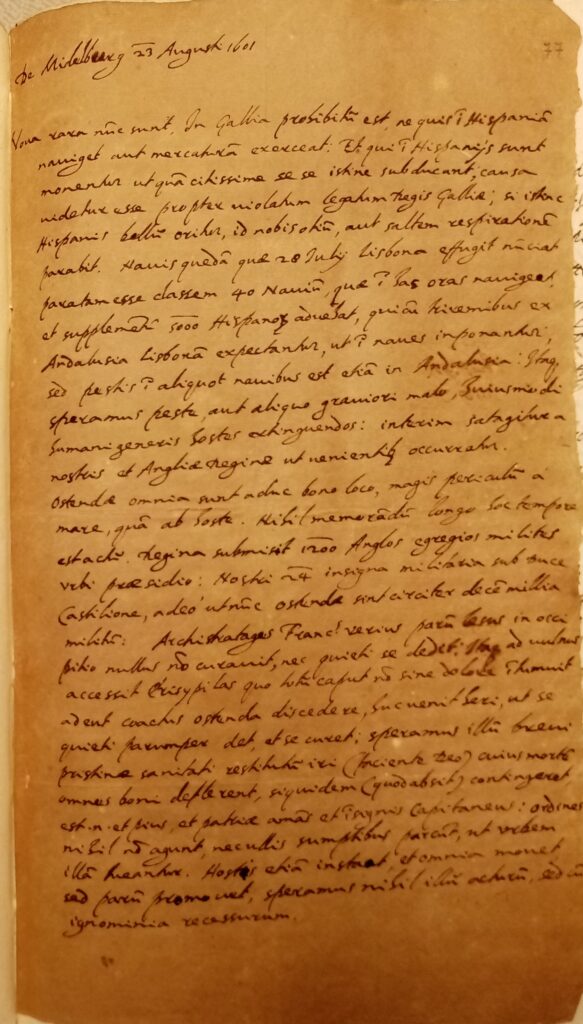 De Midelburg 23 Augusti 1601
77
Nova rara nũc sunt, In Gallia prohibitũ est, ne quis ĩ Hispaniã
naviget aut mercaturã exerceat: Et qui ĩ Hispanijs sunt
monentur ut quã citissime se se istinc subducant, causa
videtur esse propter violatum legatum Regis Galliæ; si istinc
Hispanis bellũ oritur, id nobis otiũ, aut saltem respirationẽ
parabit. Navis quedã quæ 28 Julij Lisbona effugit nũciat
paratam esse classem 40 Naviũ, quæ ĩ has oras naviget,
et supplementũ 5000 Hispanoꝝ advehat, qui cũ triremibus ex
Andalusia Lisbonã expectantur, ut ĩ naves imponantur;
sed pestis ĩ aliquot navibus est etiã in Andalusia: Itaq,
speramus peste aut aliquo graviori malo, huiusmodi
humani generis hostes extinguendos: interim satagitur a
nostris et Angliæ Reginæ ut venientib occurratur.
Ostendæ omnia sunt aduc bono loco, magis periculũ a
mare, quã ab hoste. Nihil memorãdũ longo hoc tempore
est actũ. Regina submisit 1200 Anglos egregios milites
urbi præsidio: Nostri 24 insigna militaria sub Duce
Castilione, adeo ut nũc Ostendæ sint circiter decẽ millia
militũ: Archistrategus Franc: verius parũ lesus in occi
pitio nullus nõ curavit, nec quieti se dedit; Itaq ad vulnus
accessit Erisypilas quo totũ caput nõ sine dolore ĩtumuit
adeut coactus Ostenda discedere, huc venit heri, ut se
quieti parumper det, et se curet; speramus illũ brevi
pristinæ sanitati restitutũ iri (faciente Deo) cuius mortẽ
omnes boni deflerent, siquidem (quod absit) contingeret,
est .n. et pius, et patriæ amãs et ĩsignis Capitaneus: ordines
nihil nõ agunt, nec ullis sumptibus parcũt, ut urbem
illã tueantur. Hostis etiã instat, et omnia movet
sed parũ promovet, speramus nihil illũ acturũ, sed cũ
ignominia recessurum.